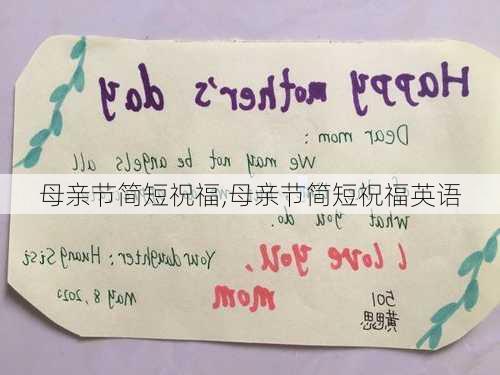 Happy mother's day
Dear mom:
We may not be angels all
母亲节简短祝福,母亲节简短祝福英语
what you do.
I love you,
mom
Your daughter: Huang Sisi
May 8, 2022
501
黄思思